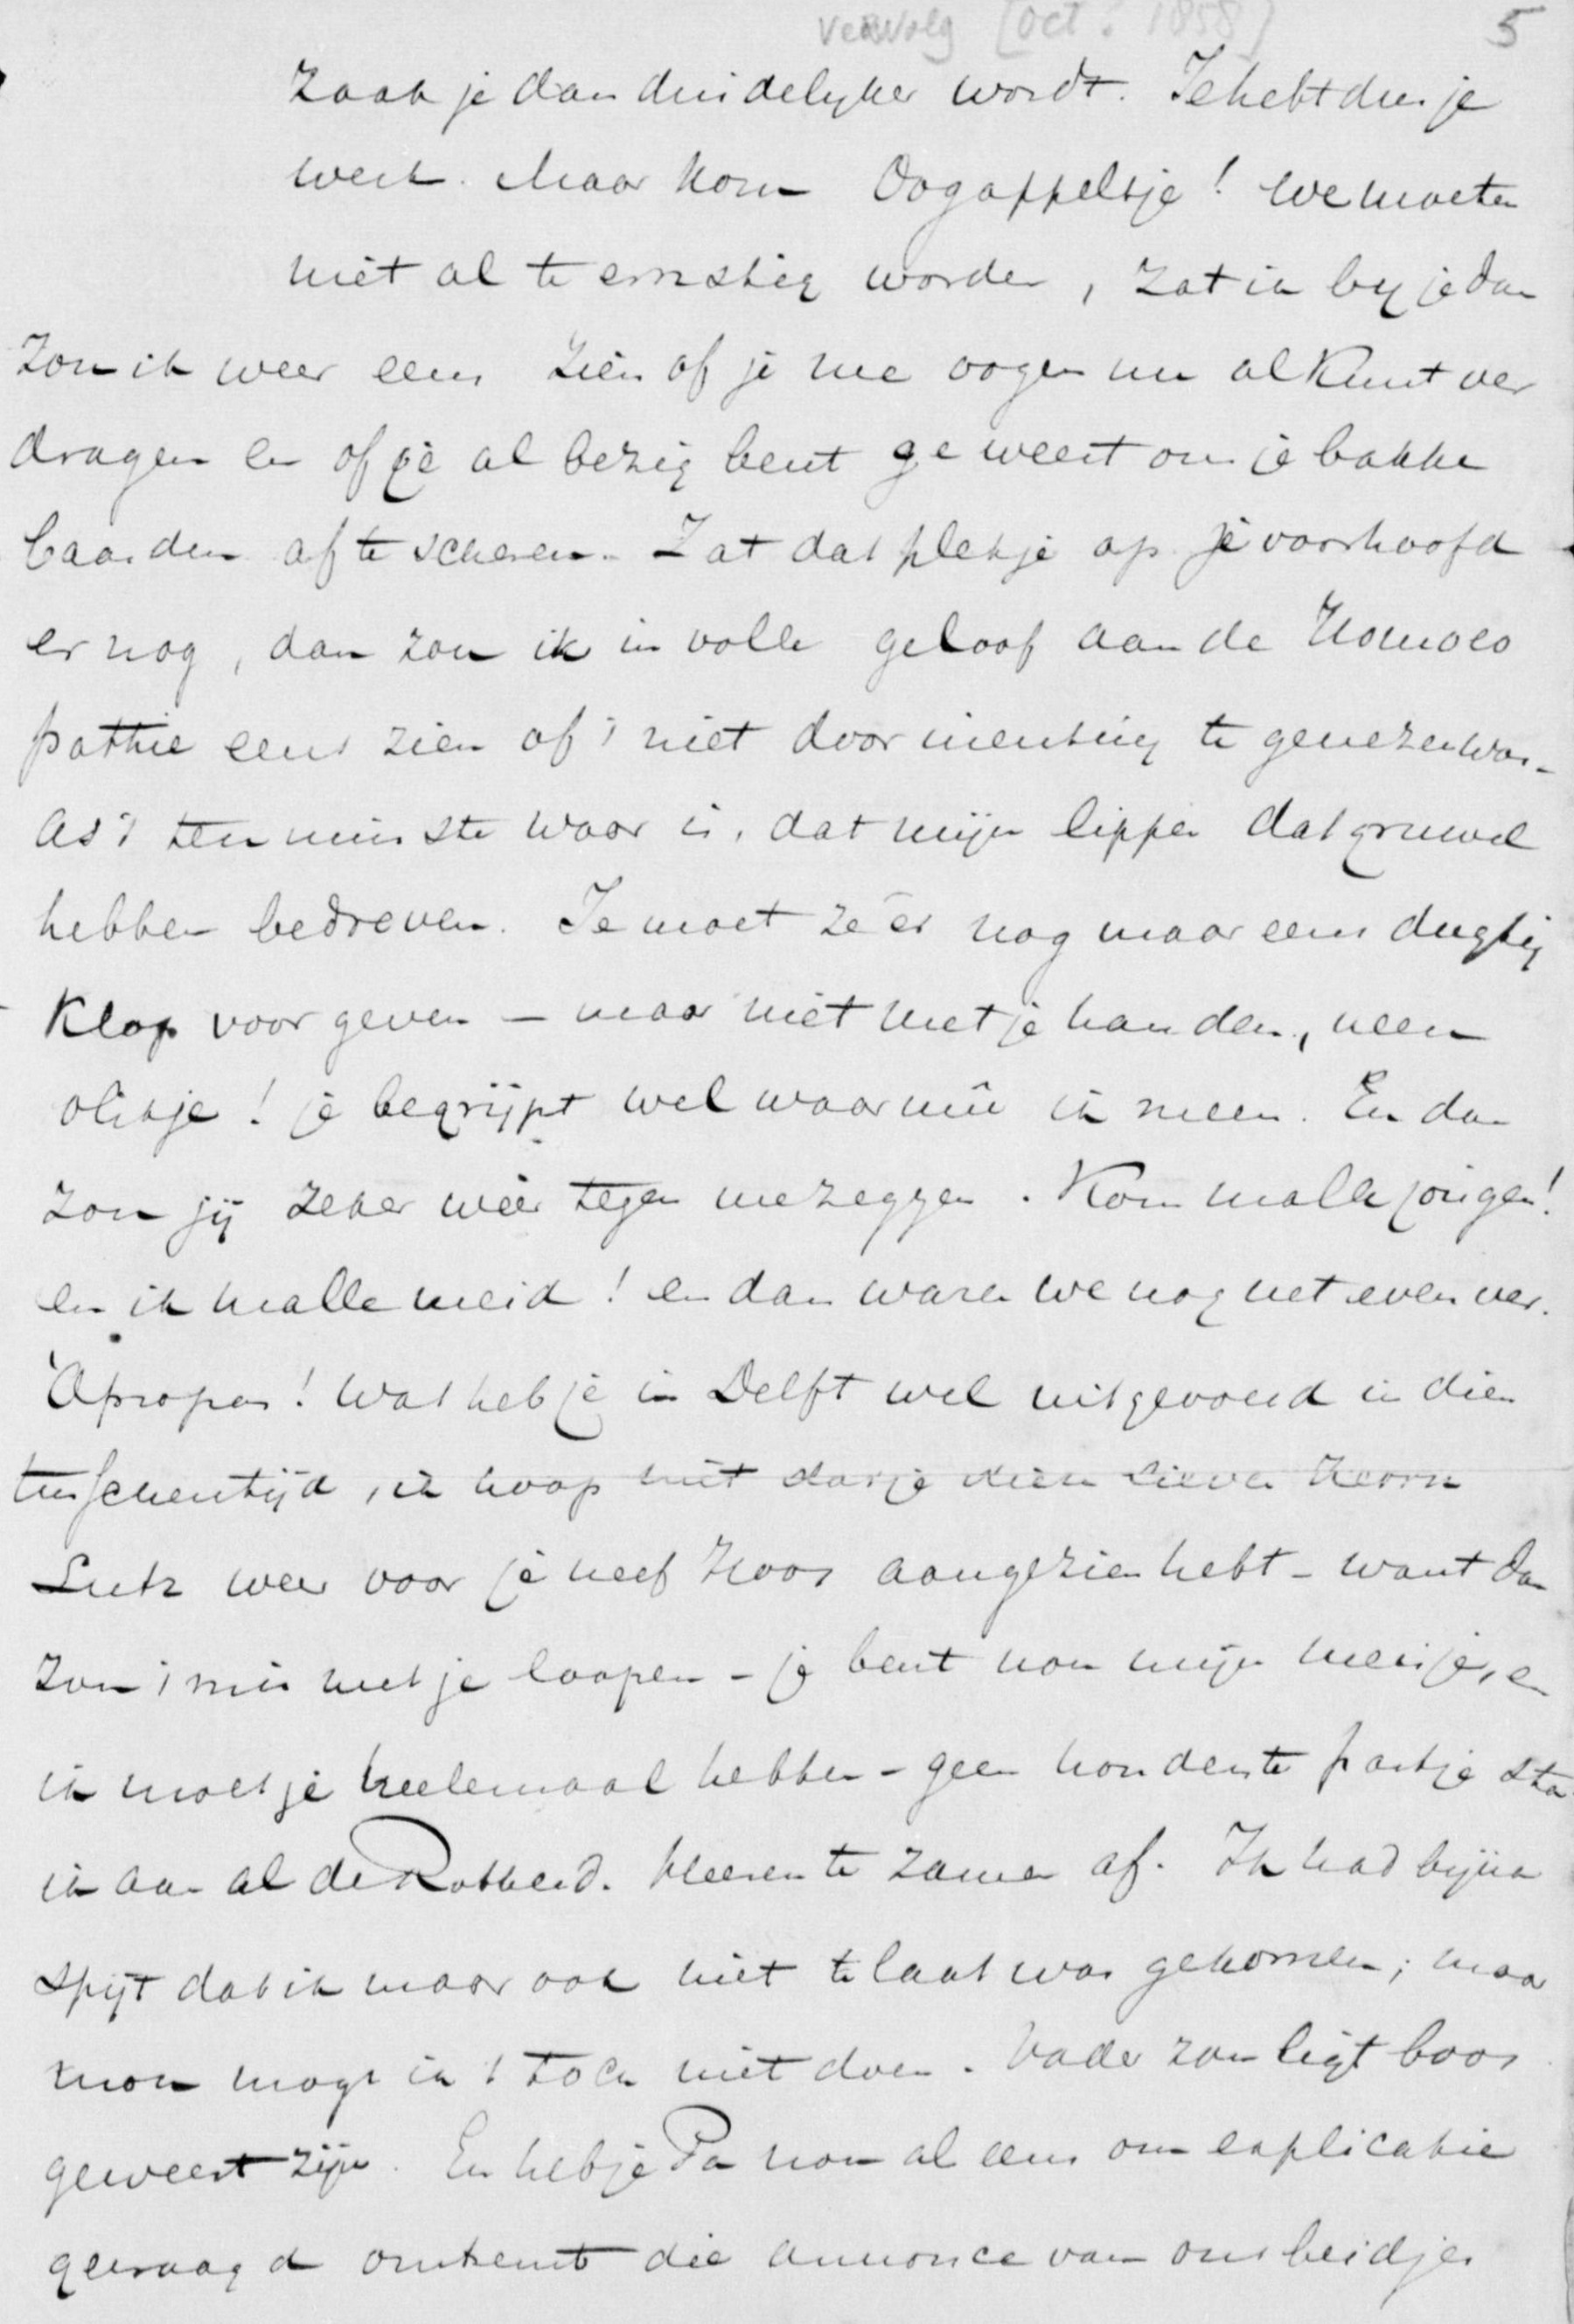 vervolg [oct. 1858] 5
zaak je dan duidelyker wordt. Je hebt dus je
werk. Maar kom Oogappeltje! we moeten
niet al te ernstig worden, zat ik by je dan
zou ik weer eens zien of je me oogen nu al kunt ver
dragen en of je al bezig bent geweest om je bakke
baarden af te scheren. Zat dat plekje op je voorhoofd
er nog, dan zou ik in volle geloof aan de Homoeo
pathie eens zien of 't niet door inenting te genezen was.
As 't ten minste waar is, dat mijn lippen dat gruwel
hebben bedreven. Je moet ze er nog maar eens dugtig
klop voor geven – maar niet met je handen, neen
olikje! je begrijpt wel waarmeê ik meen. En dan
zou jij zeker wéér tegen me zeggen. Kom malle jongen!
en ik malle meid! en dan waren we nog net even ver.
Apropos! Wat heb je in Delft wel uitgevoerd in dien
tusschentijd, ik hoop niet dat je dien lieven Heer
Lutz weer voor je neef Koos aangezien hebt – want dan
zou 't mis met je loopen – je bent nou mijn meisje, en
ik moet je heelemaal hebben – geen honderste partje sta
ik aan al de Rotterd. Heeren te zamen af. Ik had bijna
spijt dat ik maar ook niet te laat was gekomen; maar
nou mogt ik 't toch niet doen. Vader zou ligt boos
geweest zijn. En heb je Pa nou al eens om explicatie
gevraagd omtrent die annonce van ons beidjes